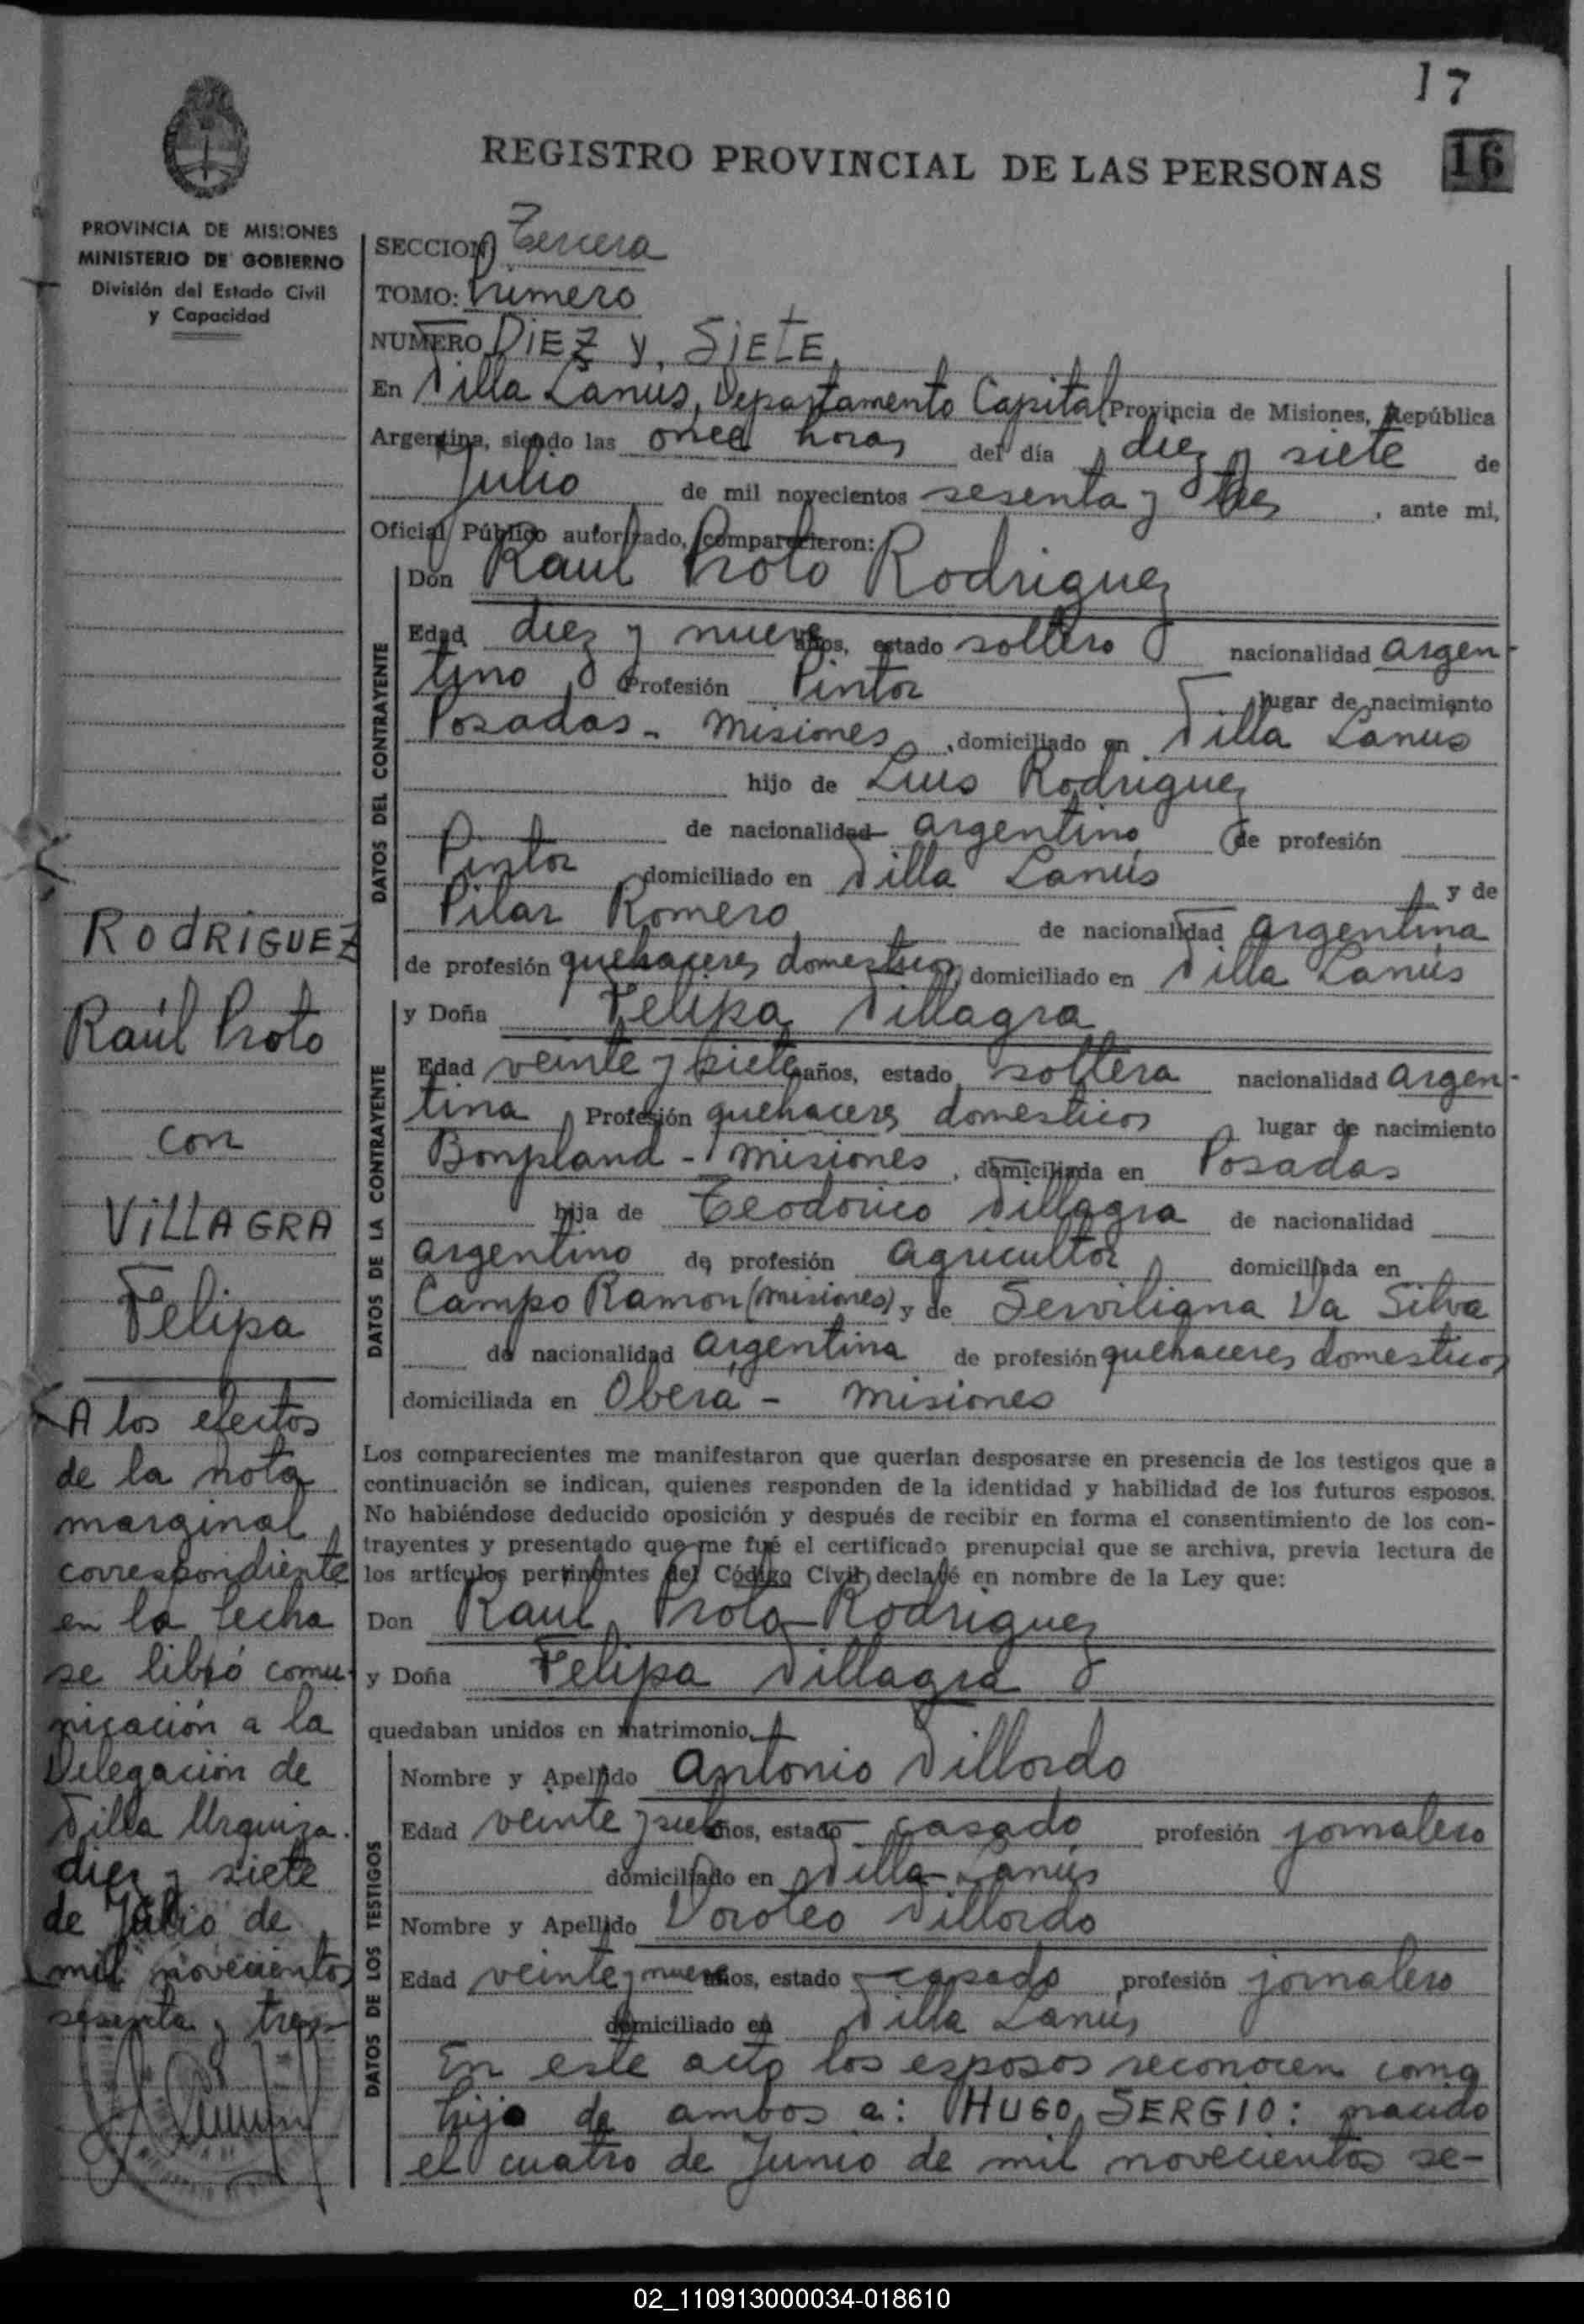 17
REGISTRO PROVINCIAL DE LAS PERSONAS
16
PROVINCIA DE MISIONES
MINISTERIO DE GOBIERNO
División del Estado Civil
y Capacidad
SECCION Tercera
TOMO: Primero
NUMERO DiEZ y SiETE
En Villa Lanús, Departamento Capital Provincia de Misiones, República
Argentina, siendo las once horas del día diez y siete de
Julio de mil novecientos sesenta y tres, ante mi,
Oficial Público autorizado, comparecieron:
Don Raul Proto Rodriguez
DATOS DEL CONTRAYENTE
Edad diez y nueve años, estado soltero nacionalidad argen-
tino Profesión Pintor lugar de nacimiento
Posadas - Misiones, domiciliado en Villa Lanus
hijo de Luis Rodriguez
de nacionalidad argentino de profesión
Pintor domiciliado en Villa Lanús y de
Pilar Romero de nacionalidad argentina
de profesión quehaceres domesticos domiciliado en Villa Lanús
y Doña Felipa Villagra
DATOS DE LA CONTRAYENTE
Edad veinte y siete años, estado soltera nacionalidad argen-
tina Profesión quehaceres domesticos lugar de nacimiento
Bonpland - Misiones, domiciliada en Posadas
hija de Teodorico Villagra de nacionalidad
argentino de profesión agricultor domiciliada en
Campo Ramon (Misiones) y de Serviliana Da Silva
de nacionalidad argentina de profesión quehaceres domesticos
domiciliada en Oberá - Misiones
Los comparecientes me manifestaron que querían desposarse en presencia de los testigos que a
continuación se indican, quienes responden de la identidad y habilidad de los futuros esposos.
No habiéndose deducido oposición y después de recibir en forma el consentimiento de los con-
trayentes y presentado que me fué el certificado prenupcial que se archiva, previa lectura de
los artículos pertinentes del Código Civil declaré en nombre de la Ley que:
Don Raul Proto Rodriguez
y Doña Felipa Villagra
quedaban unidos en matrimonio.
DATOS DE LOS TESTIGOS
Nombre y Apellido Antonio Villordo
Edad veinte y siete años, estado casado profesión jornalero
domiciliado en Villa Lanús
Nombre y Apellido Doroteo Villordo
Edad veinte y nueve años, estado casado profesión jornalero
domiciliado en Villa Lanús
En este acto los esposos reconocen como
hijo de ambos a: HUGO SERGIO: nacido
el cuatro de Junio de mil novecientos se-
RODRiGUEZ
Raúl Proto
con
ViLLAGRA
Felipa
A los efectos
de la nota
marginal
correspondiente
en la fecha
se libró comu-
nicación a la
Delegación de
Villa Urquiza.
diez y siete
de Julio de
mil novecientos
sesenta y tres
02_110913000034-018610